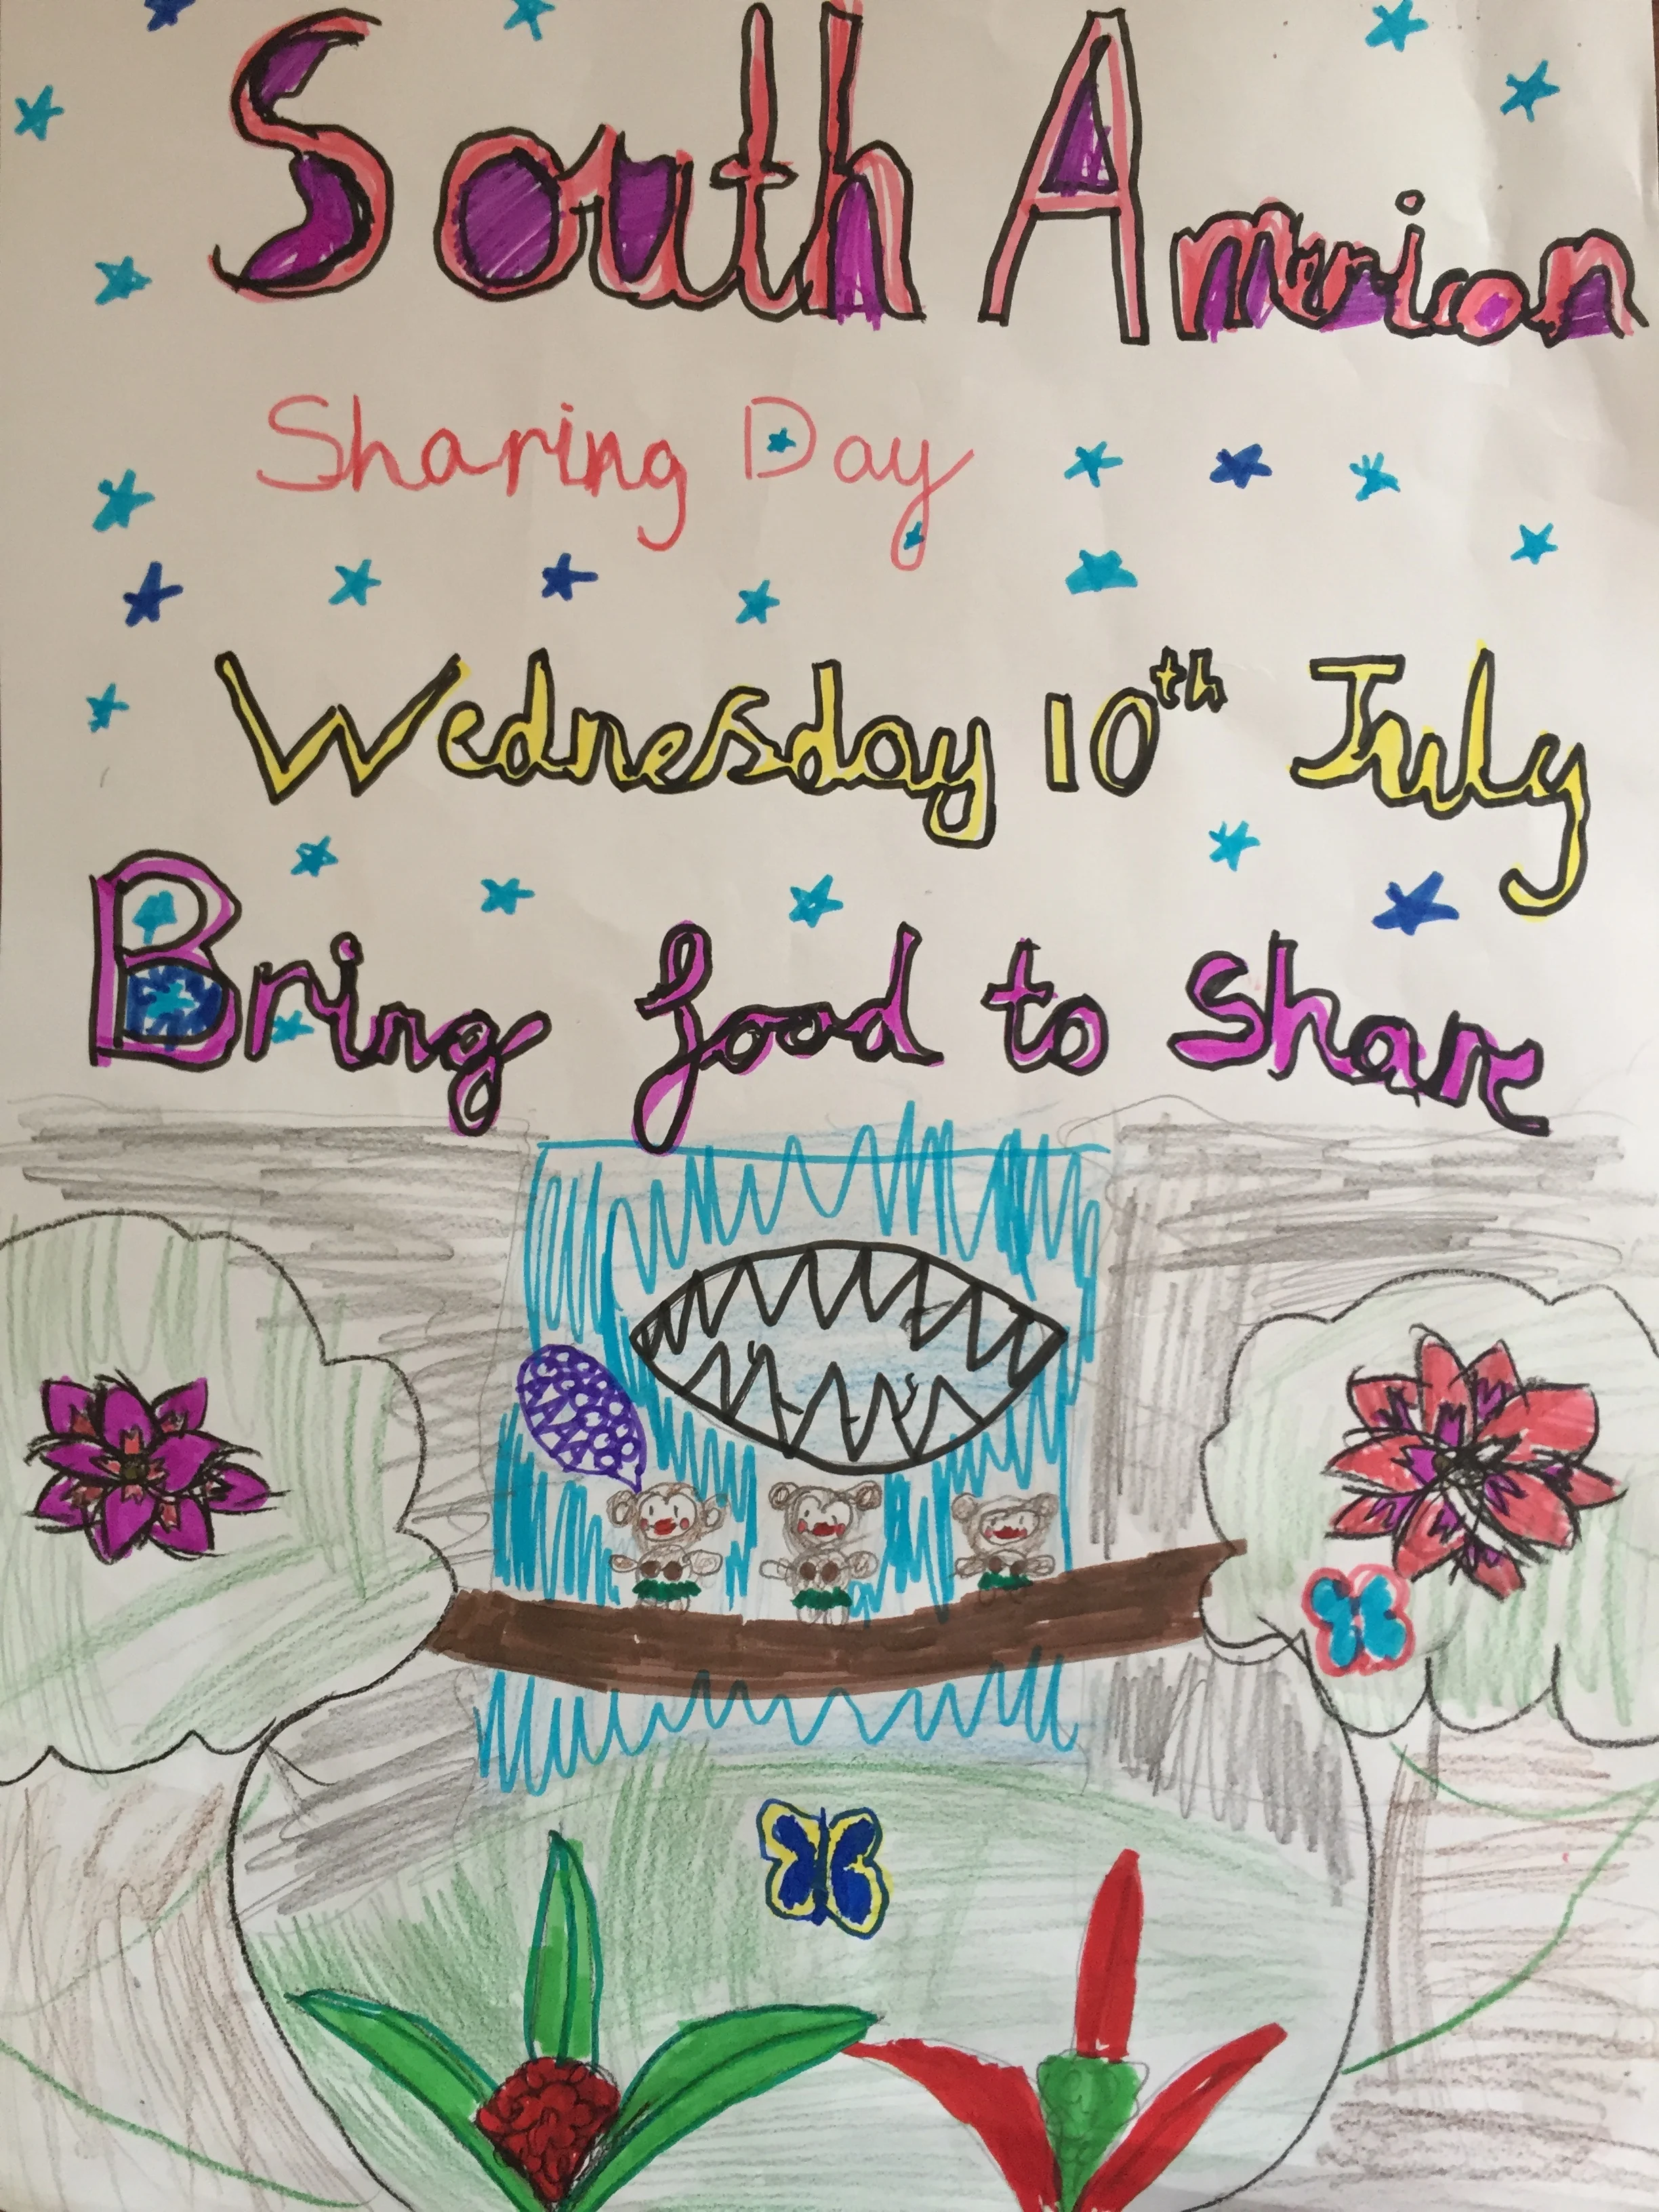 South American
Sharing Day
Wednesday 10th July
Bring food to share